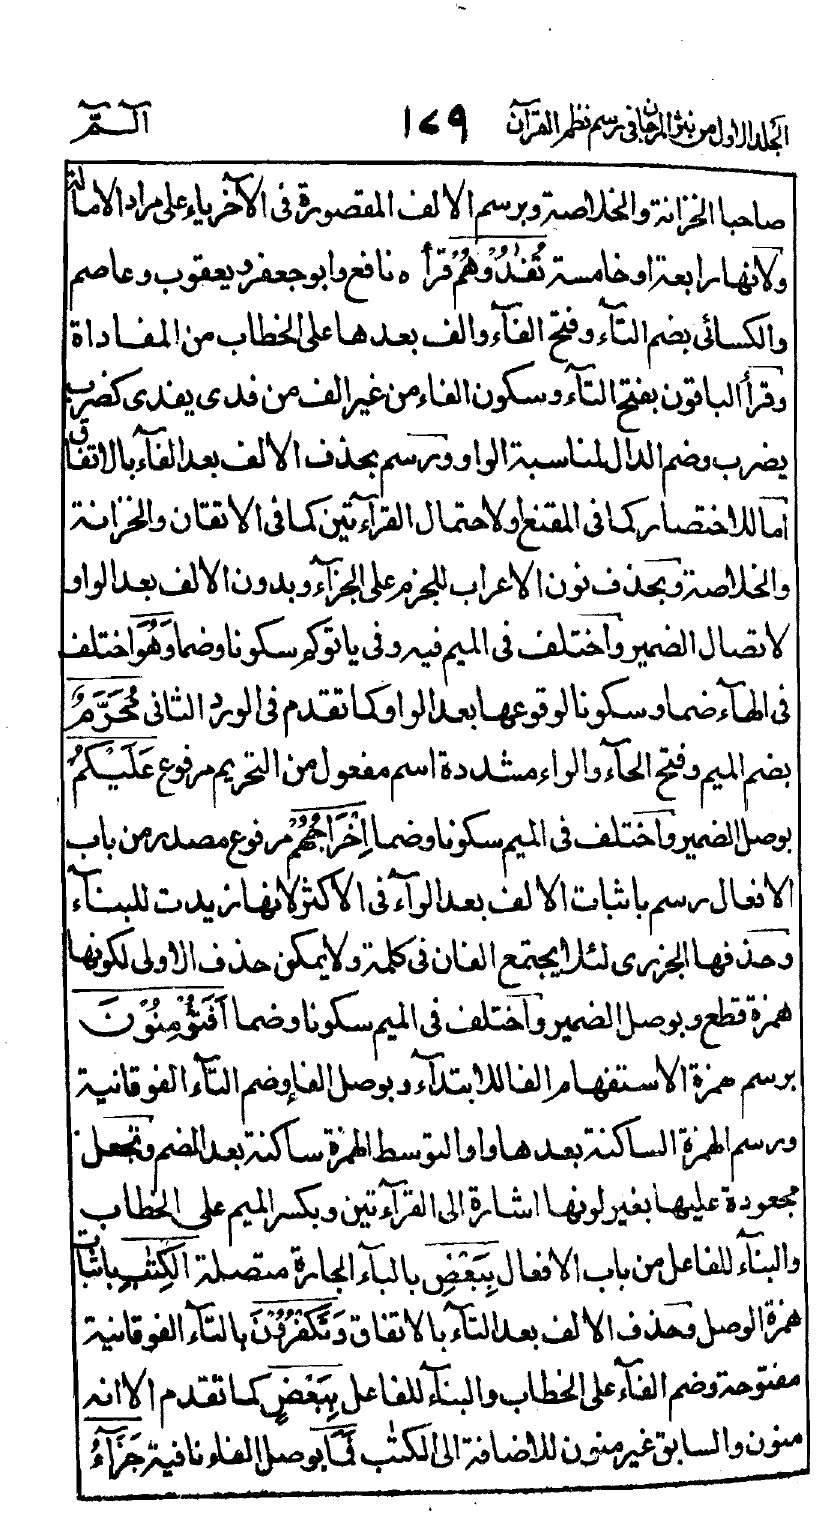 الجلد الاول من نثر المرجان فى رسم نظم القرآن ١٤٩ الٓـمّٓ
صاحبا الخزانة والخلاصة وبرسم الالف المقصورة فى الآخر ياء على مراد الامالة
ولانها رابعة او خامسة تُفٰدُوْهُمْ قرأ ه نافع وابو جعفر ويعقوب وعاصم
والكسائى بضم التآء وفتح الفآء والف بعدها على الخطاب من المفاداة
وقرأ الباقون بفتح التآء وسكون الفاء من غير الف من فدى يفدى كضرب
يضرب وضم الدال لمناسبة الواو ورسم بحذف الالف بعد الفآء بالاتفاق
اما للاختصار كما فى المقنع او لاحتمال القرآءتين كما فى الاتقان والخزانة
والخلاصة وبحذف نون الاعراب للجزم على الجزآء وبدون الالف بعد الواو
لاتصال الضمير واختلف فى الميم فيه وفى ياتوكم سكونا وضما وَهُوَ اختلف
فى الهآء ضما وسكونا لوقوعها بعد الواو كما تقدم فى الورد الثانى مُحَرَّمٌ
بضم الميم وفتح الحآء والراء مشددة اسم مفعول من التحريم مرفوع عَلَيْكُمْ
بوصل الضمير واختلف فى الميم سكونا وضما اِخْرَاجُهُمْ مرفوع مصدر من باب
الافعال رسم باثبات الالف بعد الرآء فى الاكثر لانها زيدت للبنآء
وحذفها الجزرى لئلا يجتمع الفان فى كلمة ولا يمكن حذف الاولى لكونها
همزة قطع وبوصل الضمير واختلف فى الميم سكونا وضما اَفَتُؤْمِنُوْنَ
برسم همزة الاستفهام الفا للابتدآء وبوصل الفاء وضم التآء الفوقانية
ورسم الهمزة الساكنة بعدها واوا لتوسط الهمزة ساكنة بعد الضم وتجعل
مجعودة عليها بغير لونها اشارة الى القرآءتين وبكسر الميم على الخطاب
والبنآء للفاعل من باب الافعال بِبَعْضِ بالبآء الجارة متصلة الْكِتٰبِ باثبات
همزة الوصل وحذف الالف بعد التآء بالاتفاق وَتَكْفُرُوْنَ بالتآء الفوقانية
مفتوحة وضم الفآء على الخطاب والبنآء للفاعل بِبَعْضٍ كما تقدم الا انه
منون والسابق غير منون للاضافة الى الكتٰب فَمَا بوصل الفاء نافية جَزَآءُ